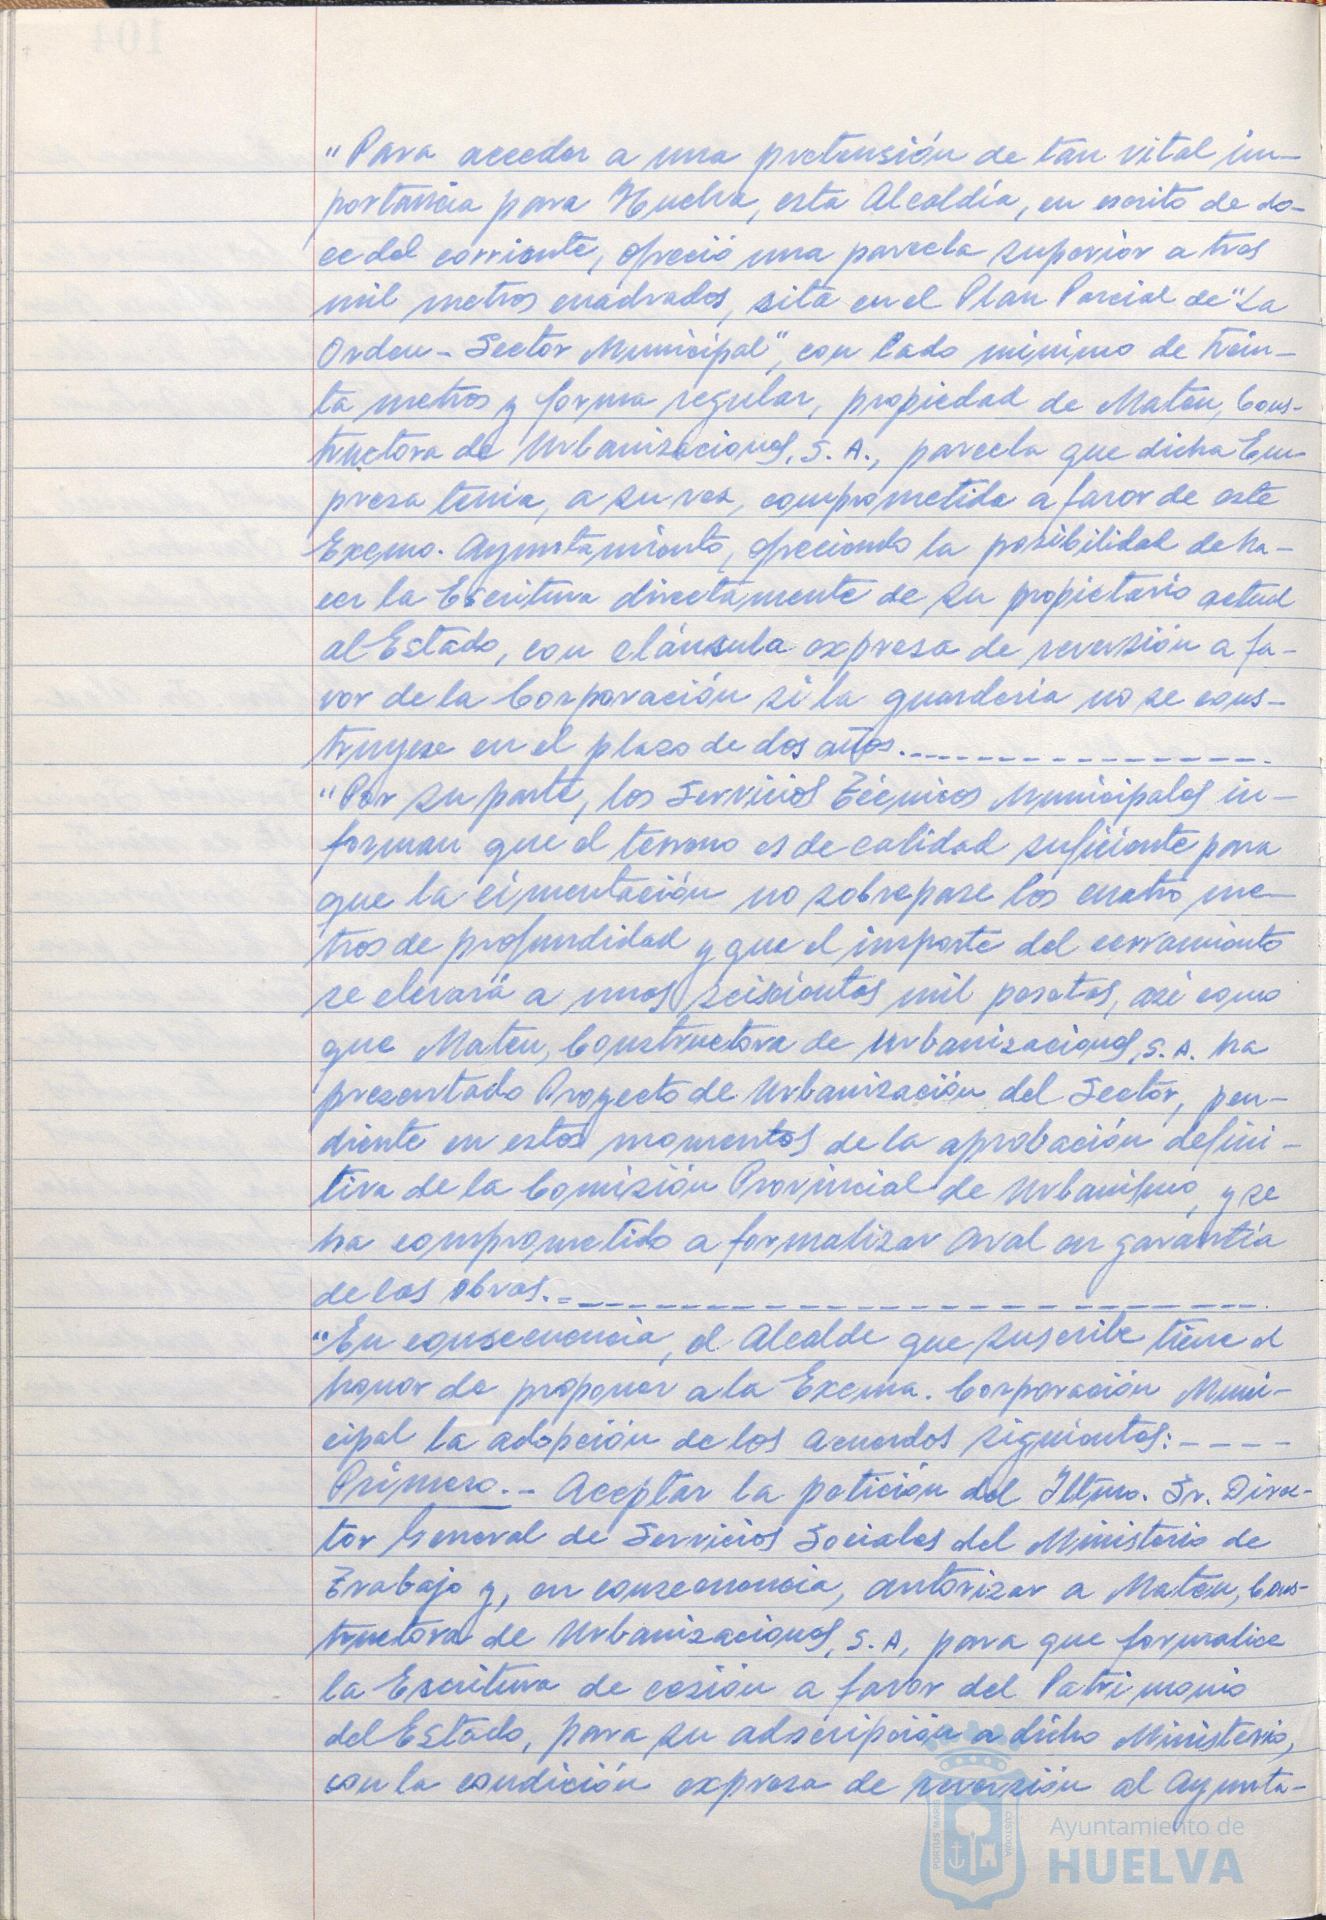 "Para acceder a una pretensión de tan vital im-
portancia para Huelva, esta Alcaldía, en escrito de do-
ce del corriente, ofreció una parcela superior a tres
mil metros cuadrados, sita en el Plan Parcial de "La
Orden - Sector Municipal", con lado mínimo de trein-
ta metros y forma regular, propiedad de Mateu, Cons-
tructora de Urbanizaciones, S. A., parcela que dicha Em-
presa tenía, a su vez, comprometida a favor de este
Excmo. Ayuntamiento, ofreciendo la posibilidad de ha-
cer la Escritura directamente de su propietario actual
al Estado, con cláusula expresa de reversión a fa-
vor de la Corporación si la guardería no se cons-
truyese en el plazo de dos años.
"Por su parte, los Servicios Técnicos Municipales in-
forman que el terreno es de calidad suficiente para
que la cimentación no sobrepase los cuatro me-
tros de profundidad y que el importe del cerramiento
se elevará a unas seiscientas mil pesetas, así como
que Mateu, Constructora de Urbanizaciones, S. A. ha
presentado Proyecto de Urbanización del Sector, pen-
diente en estos momentos de la aprobación defini-
tiva de la Comisión Provincial de Urbanismo, y se
ha comprometido a formalizar aval en garantía
de las obras.
"En consecuencia, el Alcalde que suscribe tiene el
honor de proponer a la Excma. Corporación Muni-
cipal la adopción de los acuerdos siguientes:
Primero.- Aceptar la petición del Iltmo. Sr. Direc-
tor General de Servicios Sociales del Ministerio de
Trabajo y, en consecuencia, autorizar a Mateu, Cons-
tructora de Urbanizaciones, S. A, para que formalice
la Escritura de cesión a favor del Patrimonio
del Estado, para su adscripción a dicho Ministerio,
con la condición expresa de reversión al Ayunta-
PORTUS MARIS
CUSTODIA
Ayuntamiento de
HUELVA